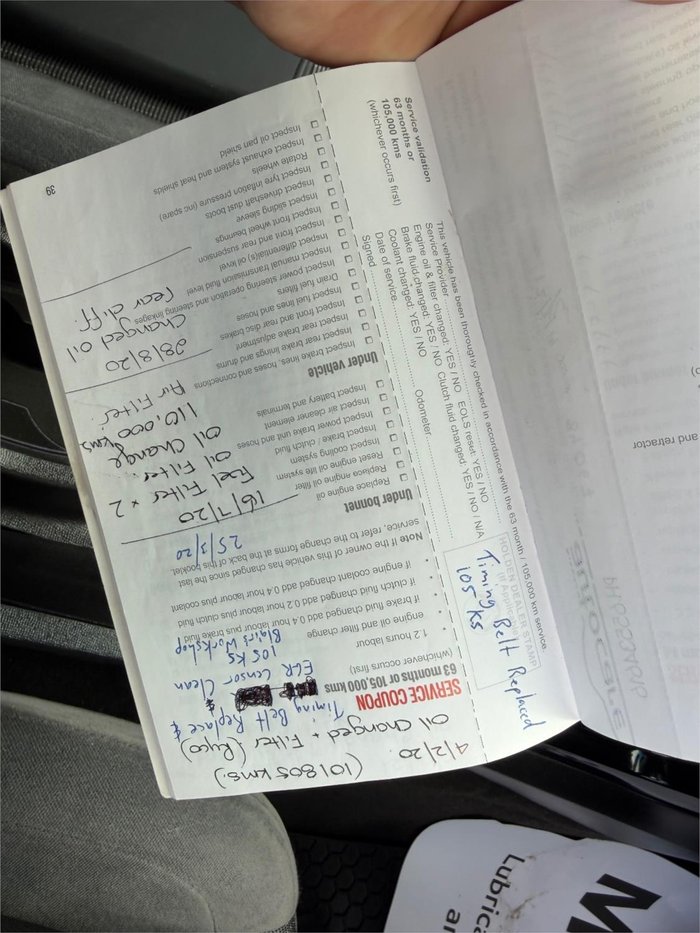 4/2/20 (101805kms.)
Oil changed + Filter (Ryco)
SERVICE COUPON
63 months or 105,000 kms
(whichever occurs first)
Timing Belt Replace &
EGR Censor Clean
105 KS
Blair's Workshop
25/3/20
1.2 hours labour
engine oil and filter change
if brake fluid changed add 0.4 hour labour plus brake fluid
if clutch fluid changed add 0.2 hour labour plus clutch
if engine coolant changed add 0.4 hour labour plus coolant
Note If the owner of this vehicle has changed since the last
service, refer to the change forms at the back of this booklet.
Under bonnet
Replace engine oil
Replace engine oil filter
Reset engine oil life system
Inspect cooling system
Inspect clutch / brake fluid
Inspect power brake unit and hoses
Inspect air cleaner element
Inspect battery and terminals
Under vehicle
Inspect brake lines, hoses and connections
Inspect rear brake linings and drums
Inspect rear brake adjustment
Inspect front and rear disc brakes
Inspect fuel lines and hoses
Drain fuel filters
Inspect power steering operation and steering linkages
Inspect manual transmission fluid level
Inspect differential(s) oil level
Inspect front and rear suspension
Inspect front wheel bearings
Inspect sliding sleeve
Inspect driveshaft dust boots
Inspect tyre inflation pressure (inc spare)
Rotate wheels
Inspect exhaust system and heat shields
Inspect oil pan shield
16/7/20
Fuel Filter x 2
oil Filter.
oil change
110,000 kms
Air Filter
28/8/20
Changed oil
rear diff
39
Service validation
63 months or
105,000 kms
(whichever occurs first)
This vehicle has been thoroughly checked in accordance with the 63 month / 105,000 km service.
Service Provider
Engine oil & filter changed: YES / NO EOLS reset: YES / NO
Brake fluid changed: YES / NO Clutch fluid changed: YES / NO / N/A
Coolant changed: YES / NO
Date of service Odometer
Signed
HOLDEN DEALER STAMP
(If Applicable)
Timing Belt Replaced
105 KS
and retractor
M
Lubrica